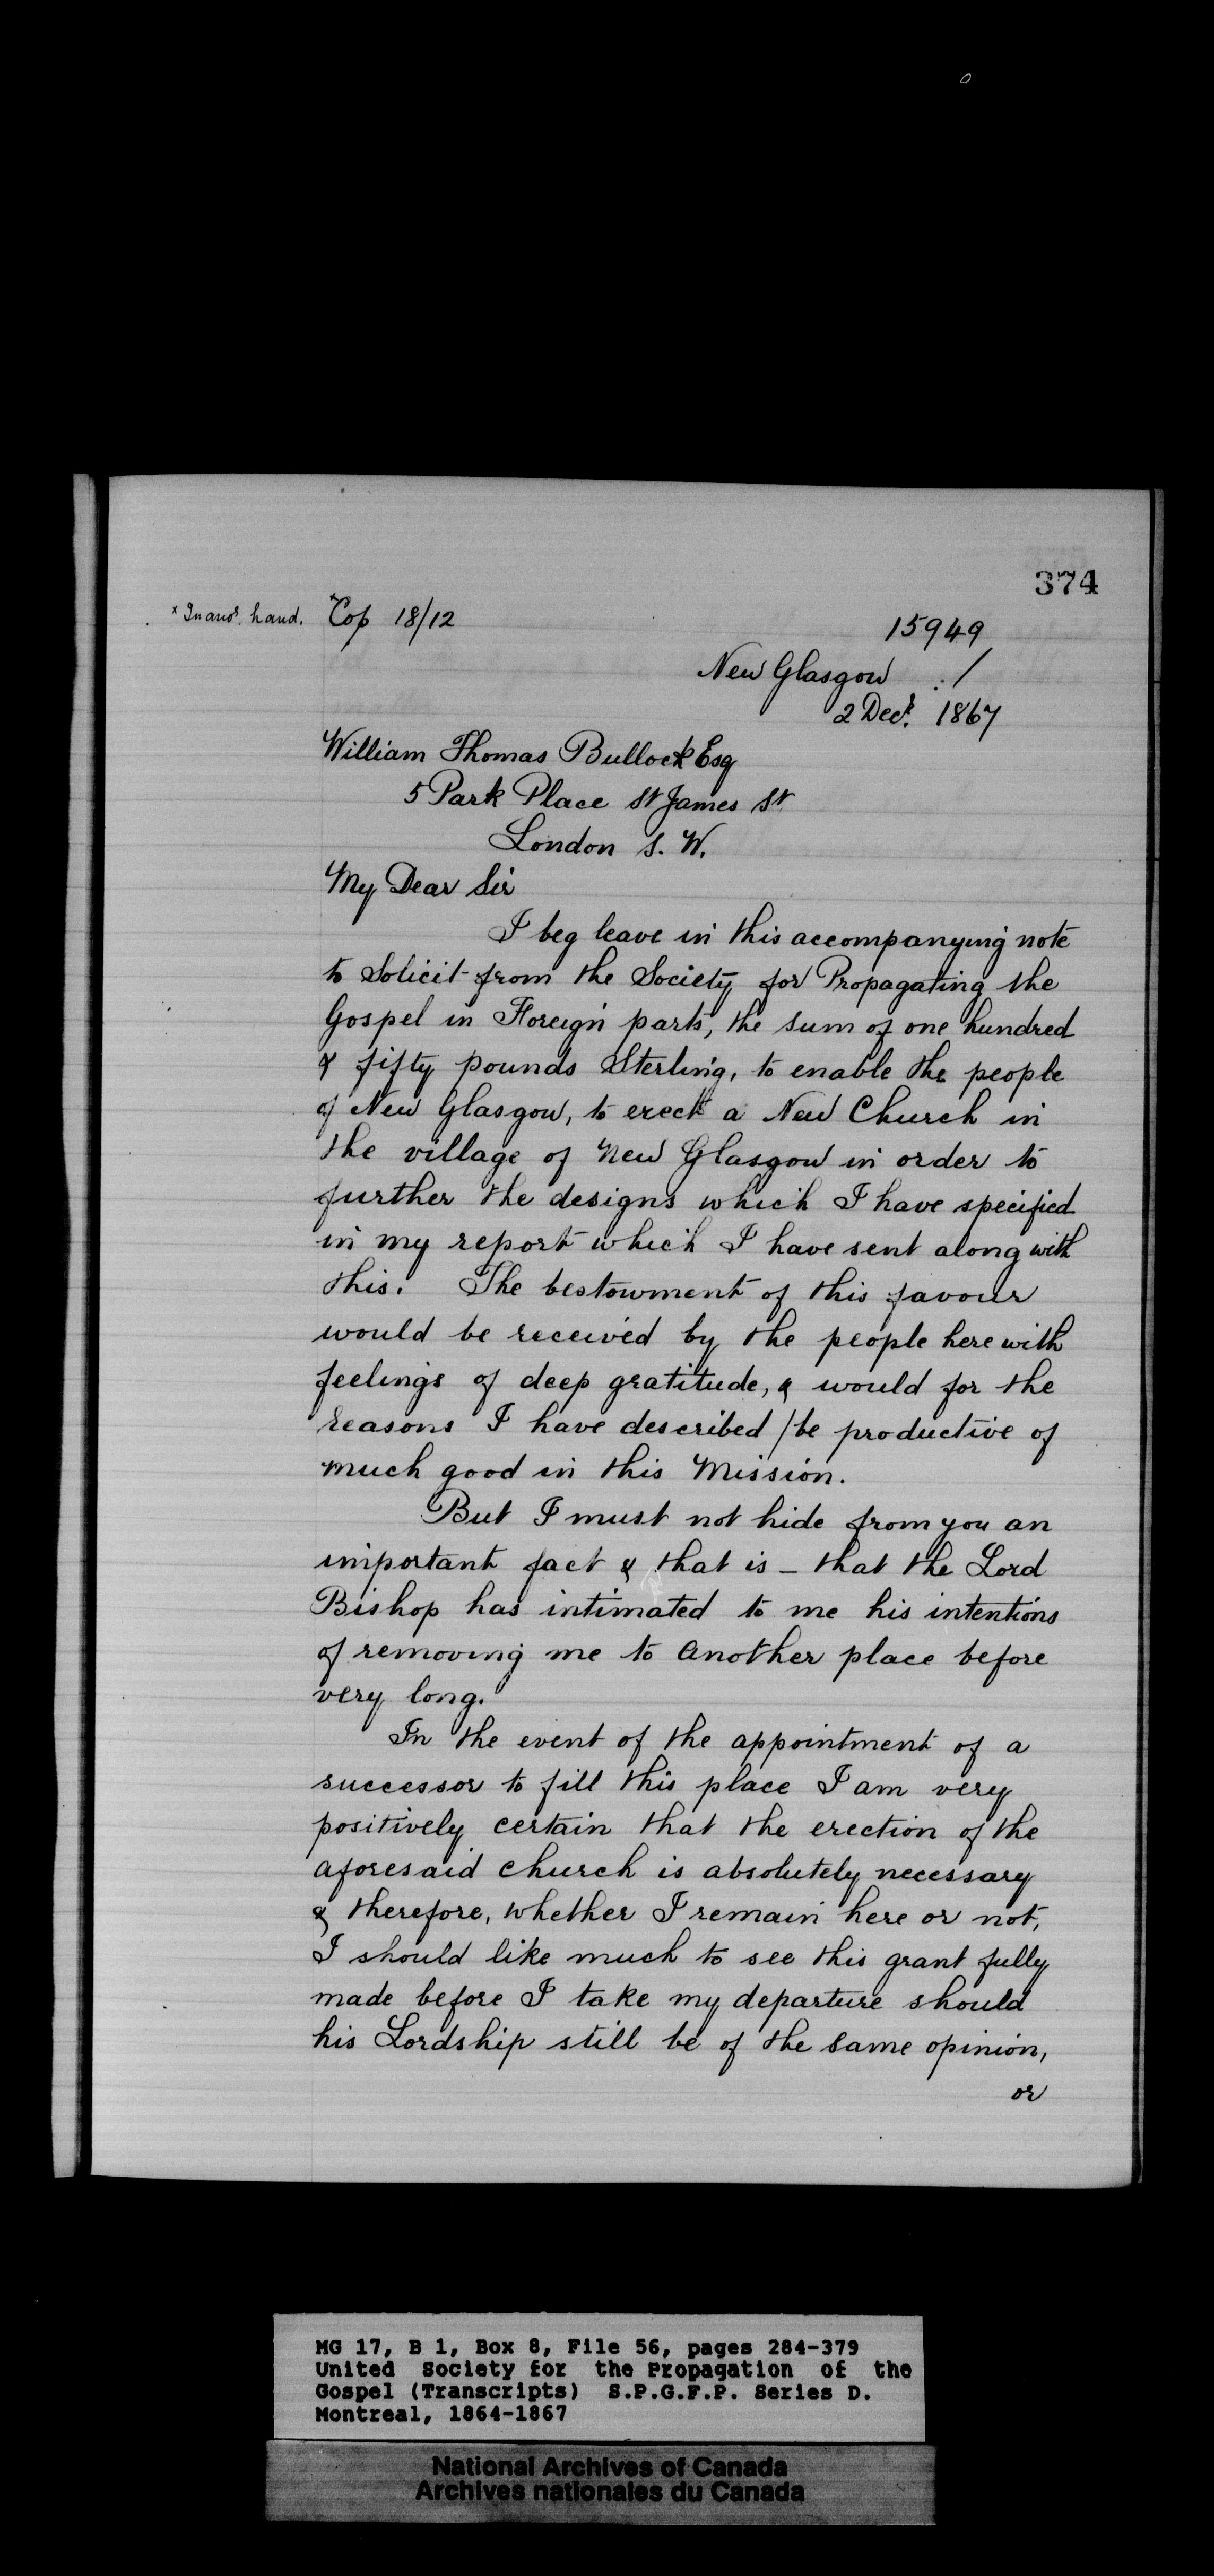 374
× In anor. hand. ×Cop 18/12
15949
New Glasgow ./
2 Decr. 1867
William Thomas Bullock Esq
5 Park Place St James St
London S. W.
My Dear Sir
I beg leave in this accompanying note
to Solicit from the Society for Propagating the
Gospel in Foreign parts, the sum of one hundred
& fifty pounds Sterling, to enable the people
of New Glasgow, to erect a New Church in
the village of New Glasgow in order to
further the designs which I have specified
in my report which I have sent along with
this. The bestowment of this favour
would be received by the people here with
feelings of deep gratitude, & would for the
reasons I have described / be productive of
much good in this Mission.
But I must not hide from you an
important fact & that is – that the Lord
Bishop has intimated to me his intentions
of removing me to another place before
very long.
In the event of the appointment of a
successor to fill this place I am very
positively certain that the erection of the
aforesaid church is absolutely necessary
& therefore, whether I remain here or not,
I should like much to see this grant fully
made before I take my departure should
his Lordship still be of the same opinion,
or
MG 17, B 1, Box 8, File 56, pages 284-379
United Society for the Propagation of the
Gospel (Transcripts) S.P.G.F.P. Series D.
Montreal, 1864-1867
National Archives of Canada
Archives nationales du Canada